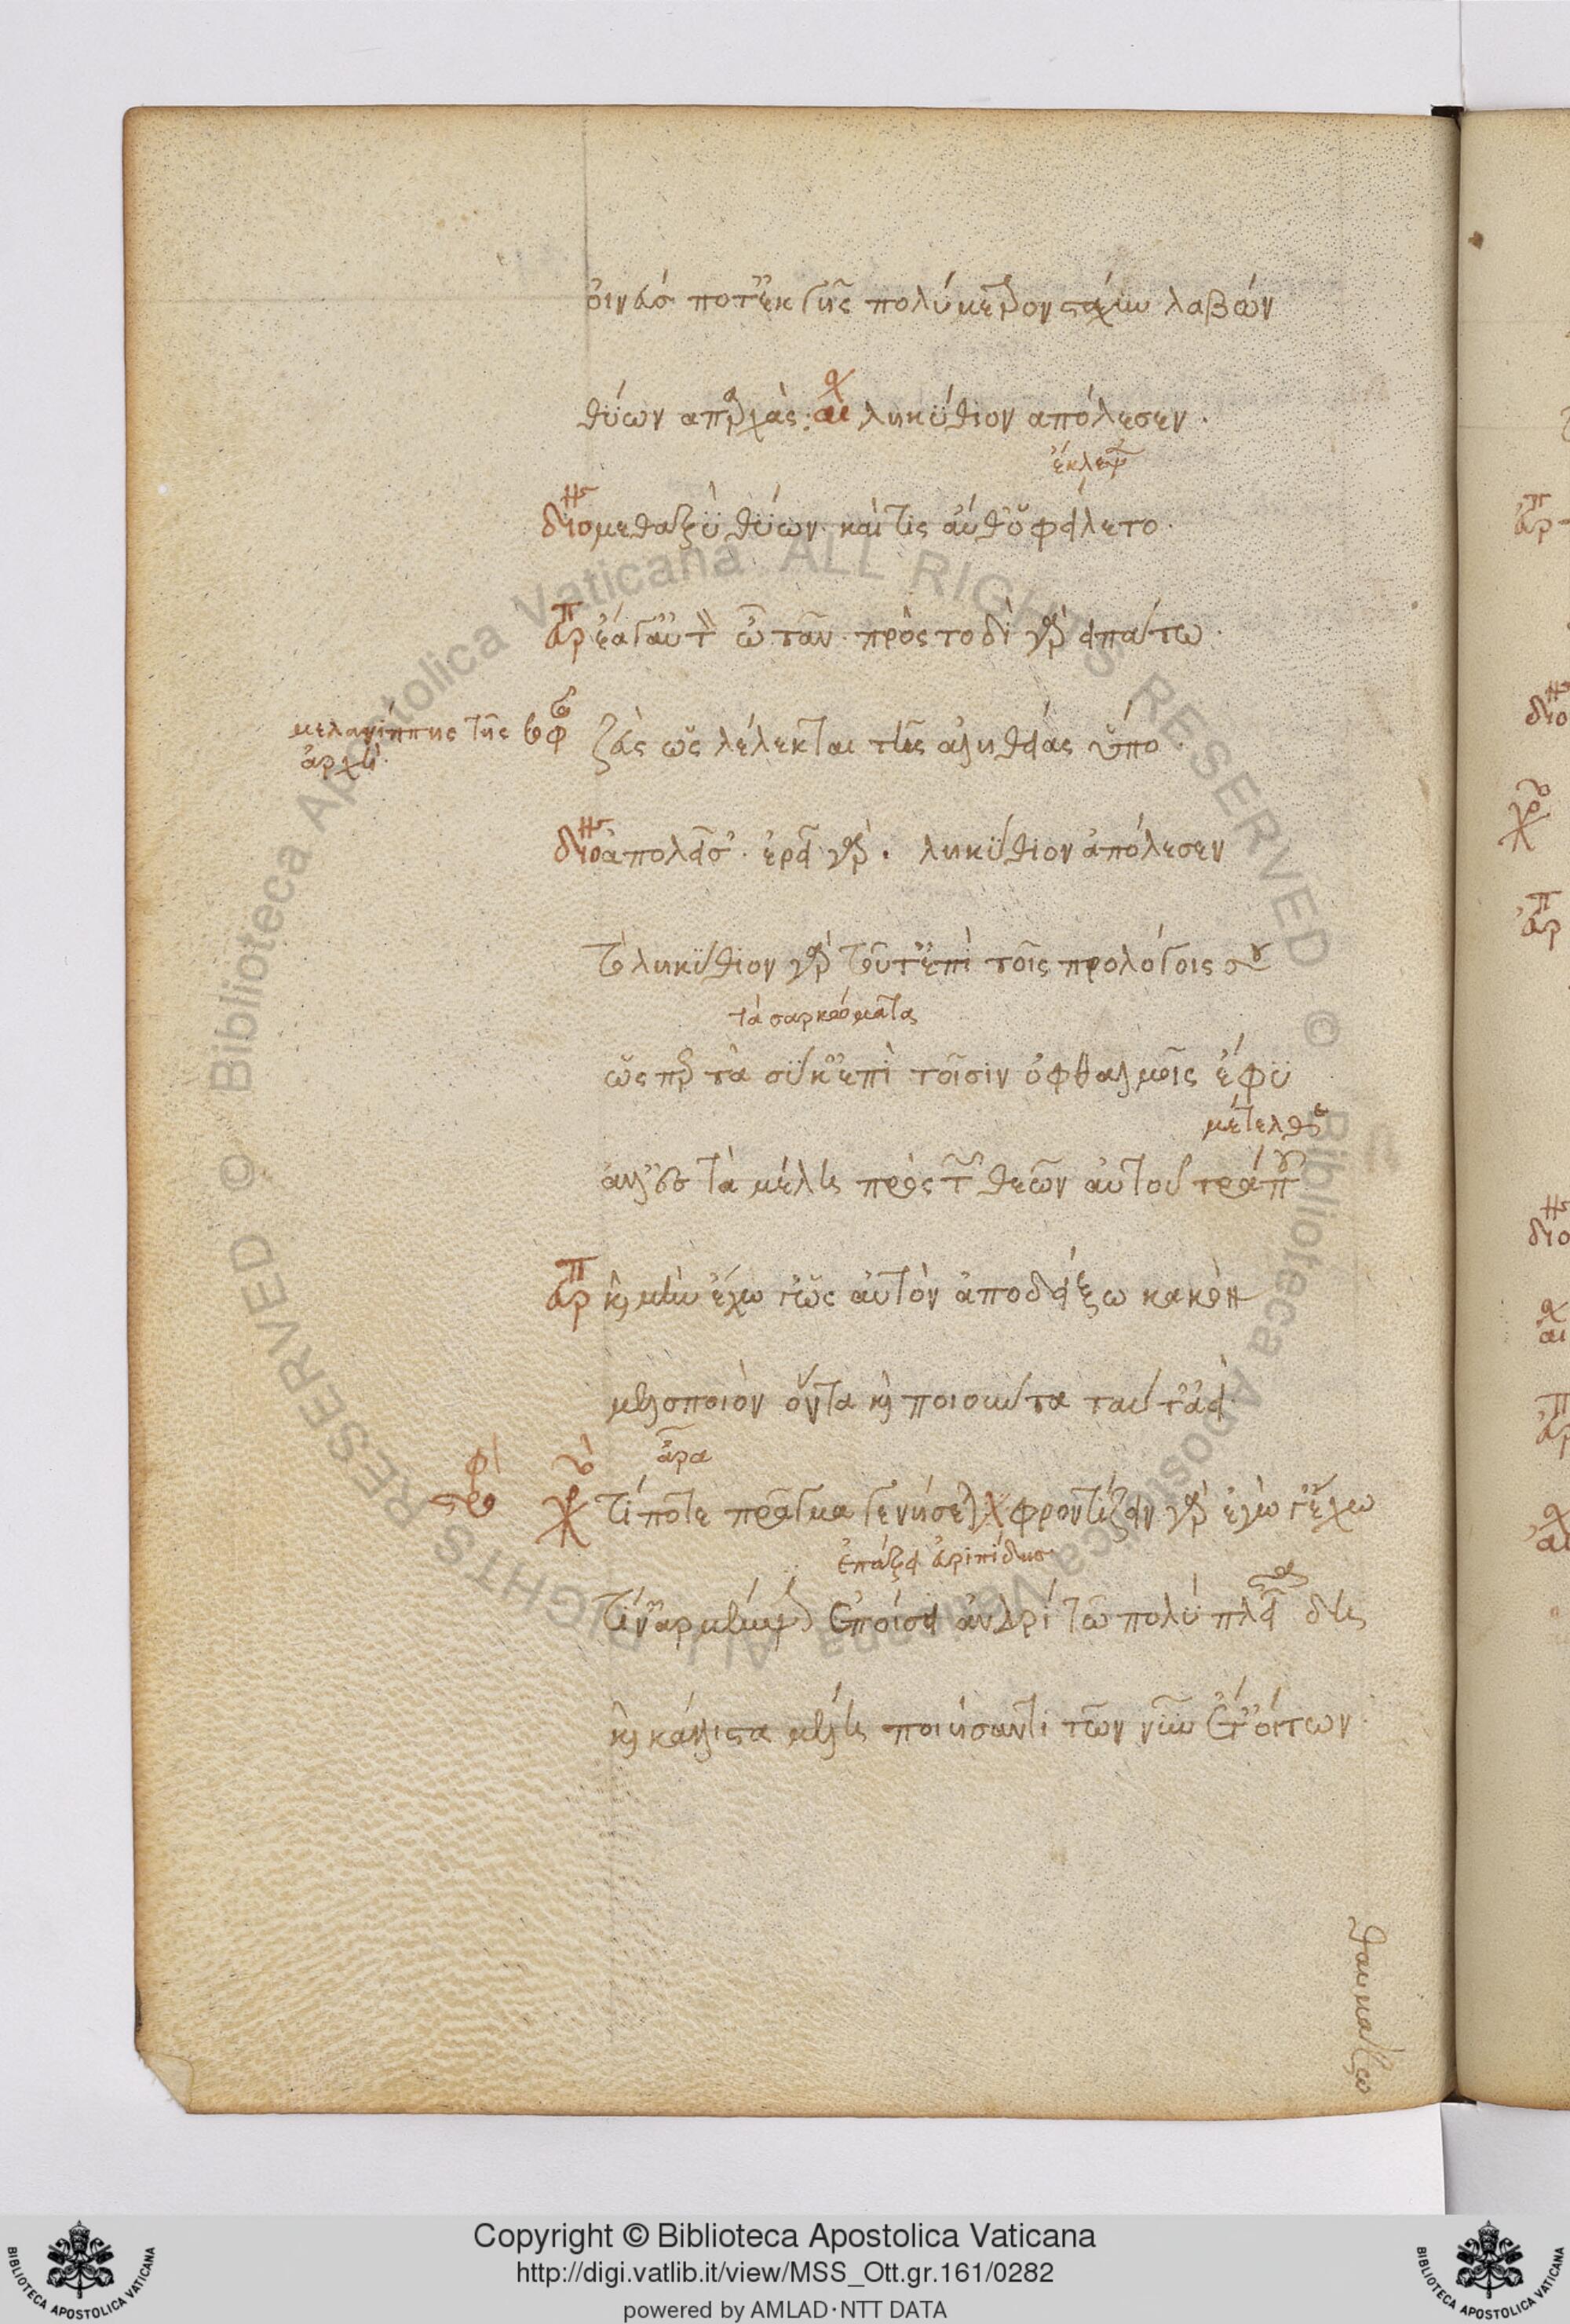 οἰνεύς ποτ' ἐκ γῆς πολύμετρον στάχυν λαβών
θύων ἀπαρχὰς: αι ληκύθιον ἀπόλεσεν.
ἔκλεψε
διο μεθαξὺ θύων. καὶ τίς αὔθ' ὑφείλετο.
ευρ ἔα γ' αὐτὸν ὦ τᾶν. πρὸς τοδὶ γὰρ εἰπάτω.
μελανίππης τῆς σοφ
ἀρχή.
ζεὺς ὡς λέλεκται τῆς ἀληθείας ὕπο.
διο ἀπολεῖ σ'. ἐρεῖ γὰρ. ληκύθιον ἀπόλεσεν
τὸ ληκύθιον γὰρ τοῦτ' ἐπὶ τοῖς προλόγοις σου
τὰ σαρκώματα
ὥσπερ τὰ σῦκ' ἐπὶ τοῖσιν ὀφθαλμοῖς ἔφυ
μέτελθε
ἀλλ' ἐς τὰ μέλη πρὸς τῶν θεῶν αὐτοῦ τράπου
ευρ καὶ μὴν ἔχω γ' ὡς αὐτὸν ἀποδείξω κακὸν
μελοποιὸν ὄντα καὶ ποιοῦντα ταύτ' ἀεί.
ἆρα
χο τί ποτε πρᾶγμα γενήσεται φροντίζειν γὰρ ἐγὼ γ' ἔχω
ἐπάξει εὐριπίδης
τίν' ἄρα μέμψιν ἐποίσει ἀνδρὶ τῶ πολὺ πλεῖστα δὴ
καὶ κάλλιστα μέλη ποιήσαντι τῶν νῦν ἔτ' ὄντων.
θαυμάζω
Copyright © Biblioteca Apostolica Vaticana
http://digi.vatlib.it/view/MSS_Ott.gr.161/0282
powered by AMLAD·NTT DATA
BIBLIOTECA APOSTOLICA VATICANA
BIBLIOTECA APOSTOLICA VATICANA
© Biblioteca Apostolica Vaticana ALL RIGHTS RESERVED © Biblioteca Apostolica Vaticana ALL RIGHTS RESERVED